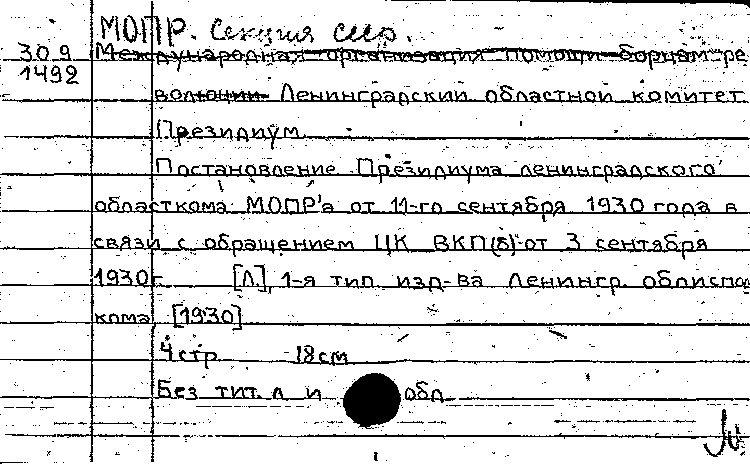 МОПР. Секция СССР.
30.9 Международная организация помощи борцам ре
1492
волюции Ленинградский областной комитет
Президиум
Постановление Президиума ленинградского
областкома МОПР'а от 11-го сентября 1930 года в
связи с обращением ЦК ВКП(б) от 3 сентября
1930г. [Л], 1-я тип. изд-ва Ленингр. облиспол
кома, [1930]
4 стр. 18 см
Без тит. л и обл.